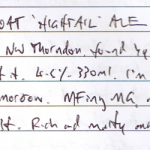 OAT 'HIGHTAIL' ALE
New Thorndon. found by
it. 4.5% 330ml. I'm
MFing MG,
Rich and malty